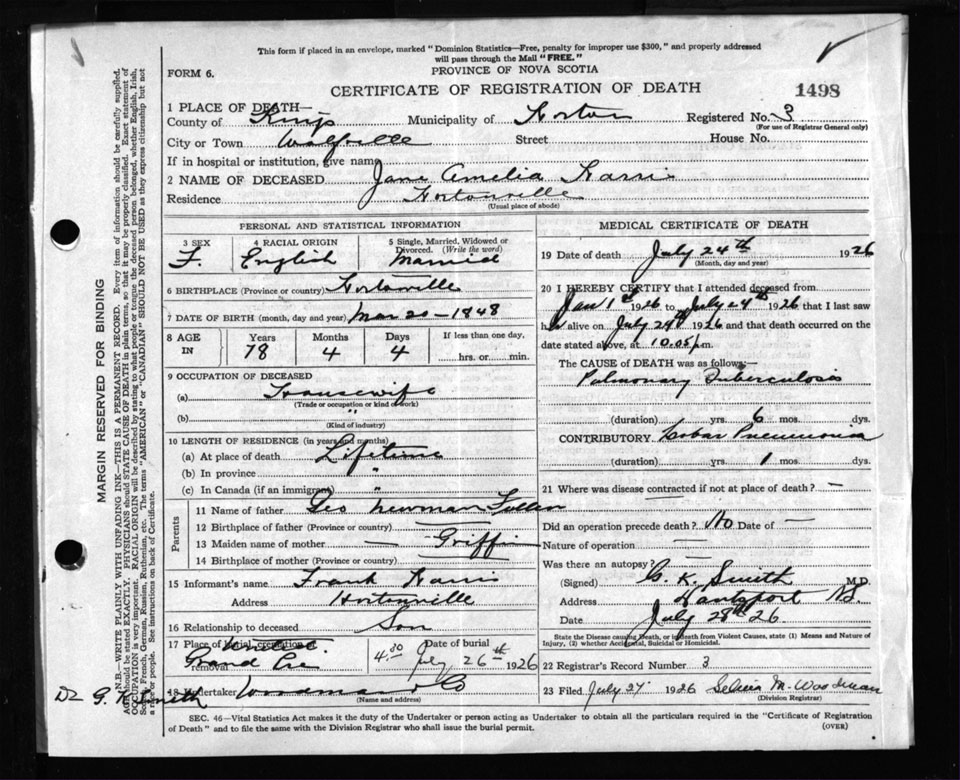 This form if placed in an envelope, marked "Dominion Statistics—Free, penalty for improper use $300," and properly addressed
will pass through the Mail "FREE."
FORM 6.
PROVINCE OF NOVA SCOTIA
CERTIFICATE OF REGISTRATION OF DEATH
1498
1 PLACE OF DEATH—
County of Kings Municipality of Horton Registered No. 3
(For use of Registrar General only)
City or Town Wolfville Street House No.
If in hospital or institution, give name
2 NAME OF DECEASED Jane Amelia Harris
Residence Hortonville
(Usual place of abode)
PERSONAL AND STATISTICAL INFORMATION
3 SEX F.
4 RACIAL ORIGIN English
5 Single, Married, Widowed or Divorced. (Write the word) Married
6 BIRTHPLACE (Province or country) Hortonville
7 DATE OF BIRTH (month, day and year) Mar 20 - 1848
8 AGE IN Years 78 Months 4 Days 4 If less than one day, hrs. or min.
9 OCCUPATION OF DECEASED
(a) Housewife
(Trade or occupation or kind of work)
(b) "
(Kind of industry)
10 LENGTH OF RESIDENCE (in years and months)
(a) At place of death Lifetime
(b) In province "
(c) In Canada (if an immigrant) "
Parents
11 Name of father Geo Newman Fullen
12 Birthplace of father (Province or country) —
13 Maiden name of mother — Griffin
14 Birthplace of mother (Province or country) —
15 Informant's name Frank Harris
Address Hortonville
16 Relationship to deceased Son
17 Place of burial, cremation or removal Grand Pre
Date of burial 4.30 July 26th 1926
18 Undertaker Woodman & Co
(Name and address)
Dr G. K. Smith
MEDICAL CERTIFICATE OF DEATH
19 Date of death July 24th 1926
(Month, day and year)
20 I HEREBY CERTIFY that I attended deceased from
Jan 1st 1926 to July 24th 1926 that I last saw
her alive on July 24th 1926 and that death occurred on
date stated above, at 10.05 p.m.
The CAUSE of DEATH was as follows—
Pulmonary Tuberculosis
(duration) yrs. 6 mos. dys.
CONTRIBUTORY Lobar Pneumonia
(duration) yrs. 1 mos. dys.
21 Where was disease contracted if not at place of death? —
Did an operation precede death? No Date of —
Nature of operation —
Was there an autopsy? —
(Signed) G. K. Smith M.D.
Address Hantsport N.S.
Date July 28th 26.
State the Disease causing Death, or in death from Violent Causes, state (1) Means and Nature of
Injury, (2) whether Accidental, Suicidal or Homicidal.
22 Registrar's Record Number 3
23 Filed July 27 1926 M. Woodman
(Division Registrar)
SEC. 46—Vital Statistics Act makes it the duty of the Undertaker or person acting as Undertaker to obtain all the particulars required in the "Certificate of Registration
of Death" and to file the same with the Division Registrar who shall issue the burial permit.
(OVER)
MARGIN RESERVED FOR BINDING
N.B.—WRITE PLAINLY WITH UNFADING INK—THIS IS A PERMANENT RECORD. Every item of information should be carefully supplied.
AGE should be stated EXACTLY. PHYSICIANS should STATE CAUSE OF DEATH in plain terms, so that it may be properly classified. Exact statement of
OCCUPATION is very important. RACIAL ORIGIN will be described by stating to what people or tongue the deceased person belonged, whether English, Irish,
Scotch, French, German, Russian, Ruthenian, etc. The terms "AMERICAN" or "CANADIAN" SHOULD NOT BE USED as they express citizenship but not
a race or people. See instructions on back of Certificate.